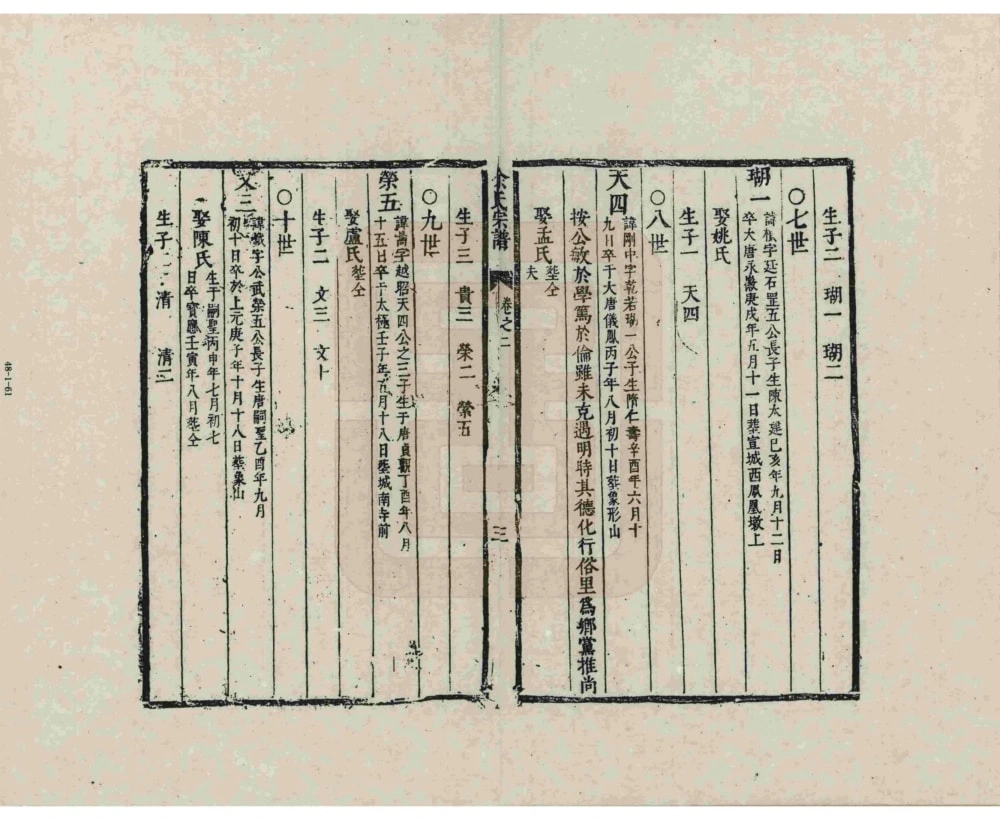 生子二 瑚一 瑚二
〇七世
瑚一
諱 字廷石罡五公長子生陳太建巳亥年九月十二日
卒大唐永徽庚戌年五月十一日塟宣城西鳳凰墩上
娶姚氏
生子一 天四
〇八世
天四
諱剛中字乾若瑚一公子生隋仁壽辛酉年六月十
九日卒于大唐儀鳳丙子年八月初十日塟象形山
按公敏於學篤於倫雖未克遇明時其德化行俗里為鄉黨推尚
娶孟氏
塟仝
夫
余氏宗譜 卷之二 三
生子三 貴三 榮二 榮五
〇九世
榮五
諱 字越昭天四公之三子生于唐貞觀丁酉年八月
十五日卒于太極壬子年五月十八日塟城南寺前
娶盧氏塟仝
生子二 文三 文
〇十世
文三
諱 字公武榮五公長子生唐嗣聖乙酉年九月
初十日卒於上元庚子年十月十八日塟象山
娶陳氏
生于嗣聖丙申年七月初七
日卒寶應壬寅年八月塟仝
生子 清 清三
48-1-61